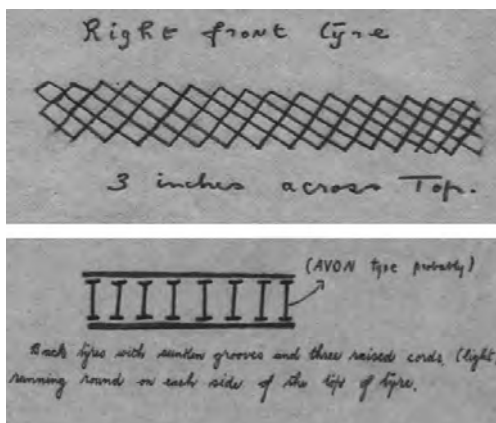 Right front tyre
3 inches across Top.
(AVON type probably)
Back tyres with sunken grooves and three raised cords, (light)
running round on each side of the top of tyre.